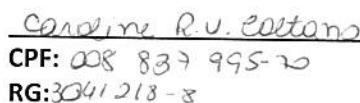 Caroline R.V. Caetano
CPF: 008 837 995-70
RG: 3041218-8